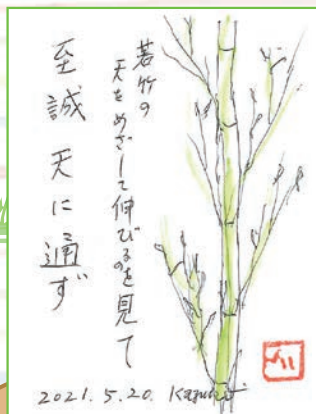 若竹の
天をめざして伸びるのを見て
至誠天に通ず
2021.5.20.